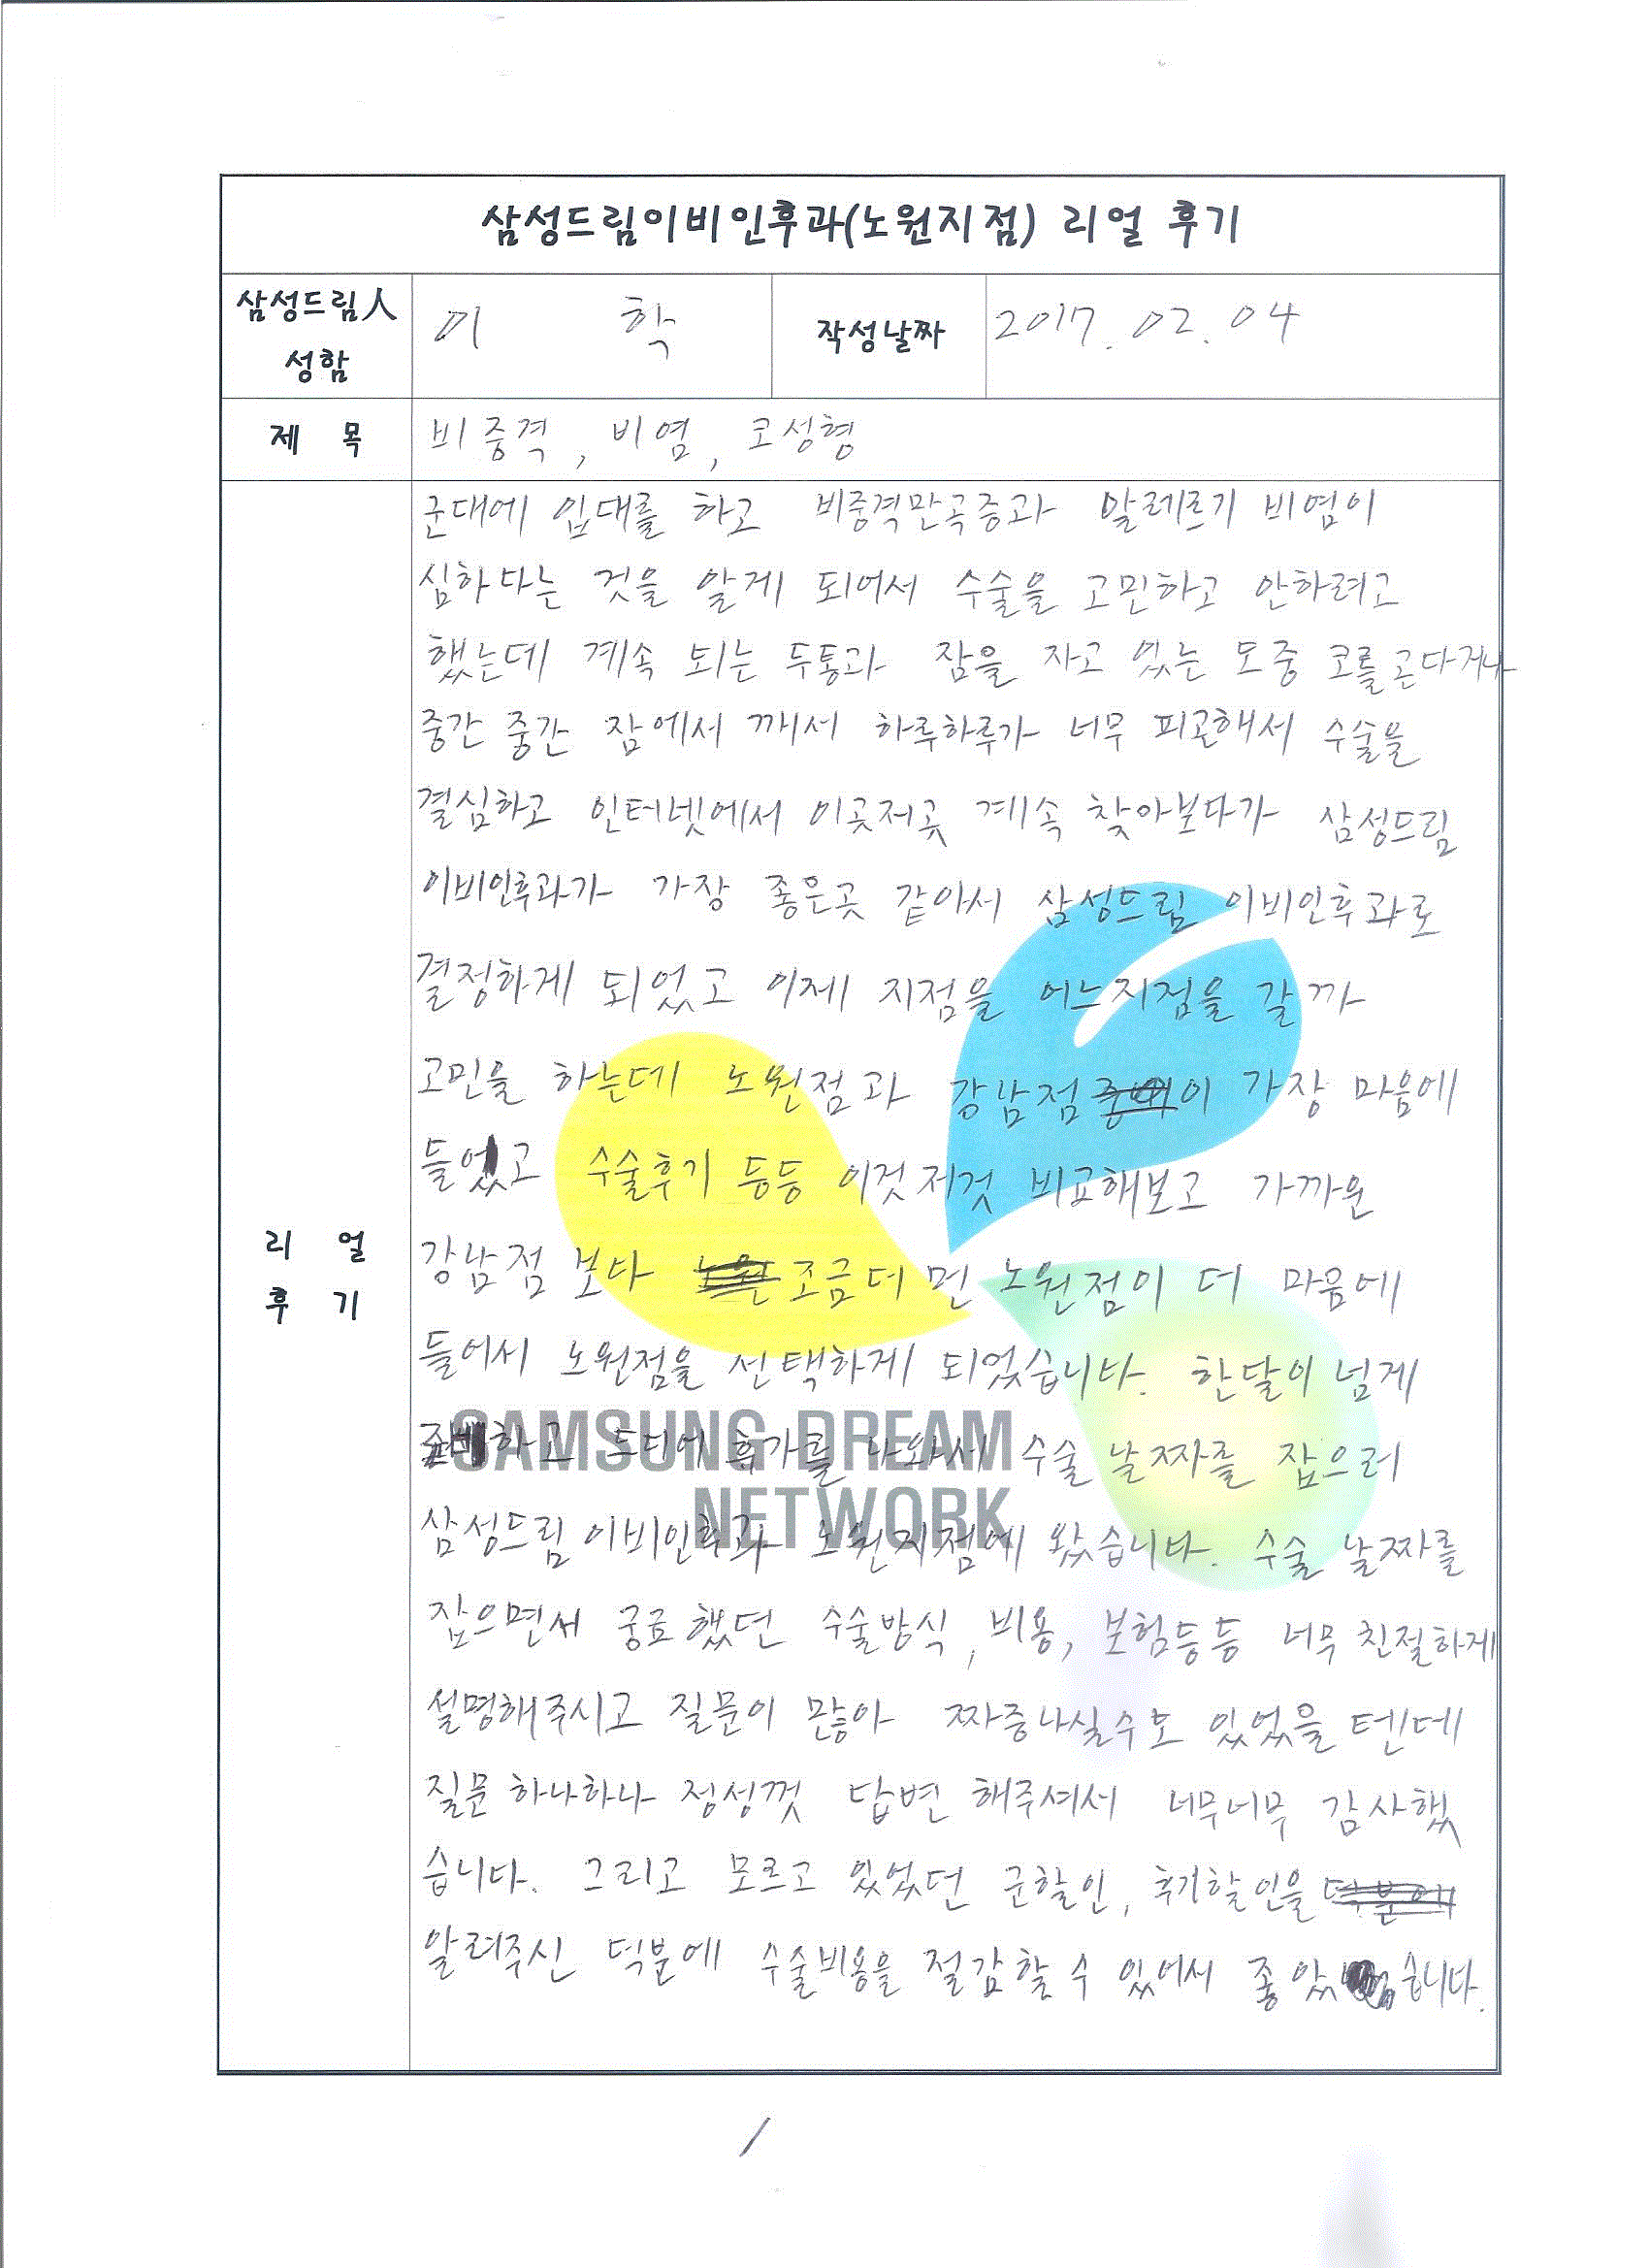 삼성드림이비인후과(노원지점) 리얼 후기
삼성드림人 성함
이 학
작성날짜
2017. 02. 04
제 목
비중격, 비염, 코성형
리 얼 후 기
군대에 입대를 하고 비중격만곡증과 알레르기 비염이
심하다는 것을 알게 되어서 수술을 고민하고 안하려고
했는데 계속 되는 두통과 잠을 자고 있는 도중 코를 곤다거나
중간 중간 잠에서 깨서 하루하루가 너무 피곤해서 수술을
결심하고 인터넷에서 이곳저곳 계속 찾아보다가 삼성드림
이비인후과가 가장 좋은곳 같아서 삼성드림 이비인후과로
결정하게 되었고 이제 지점을 어느지점을 갈까
고민을 하는데 노원점과 강남점이 가장 마음에
들었고 수술후기 등등 이것저것 비교해보고 가까운
강남점 보다 조금더 먼 노원점이 더 마음에
들어서 노원점을 선택하게 되었습니다. 한달이 넘게
준비하고 드디어 휴가를 나와서 수술 날짜를 잡으러
삼성드림 이비인후과 노원지점에 왔습니다. 수술 날짜를
잡으면서 궁금했던 수술방식, 비용, 보험등등 너무 친절하게
설명해주시고 질문이 많아 짜증나실수도 있었을 텐데
질문 하나하나 정성껏 답변 해주셔서 너무너무 감사했
습니다. 그리고 모르고 있었던 군할인, 후기할인을
알려주신 덕분에 수술비용을 절감할 수 있어서 좋았습니다.
SAMSUNG DREAM
NETWORK